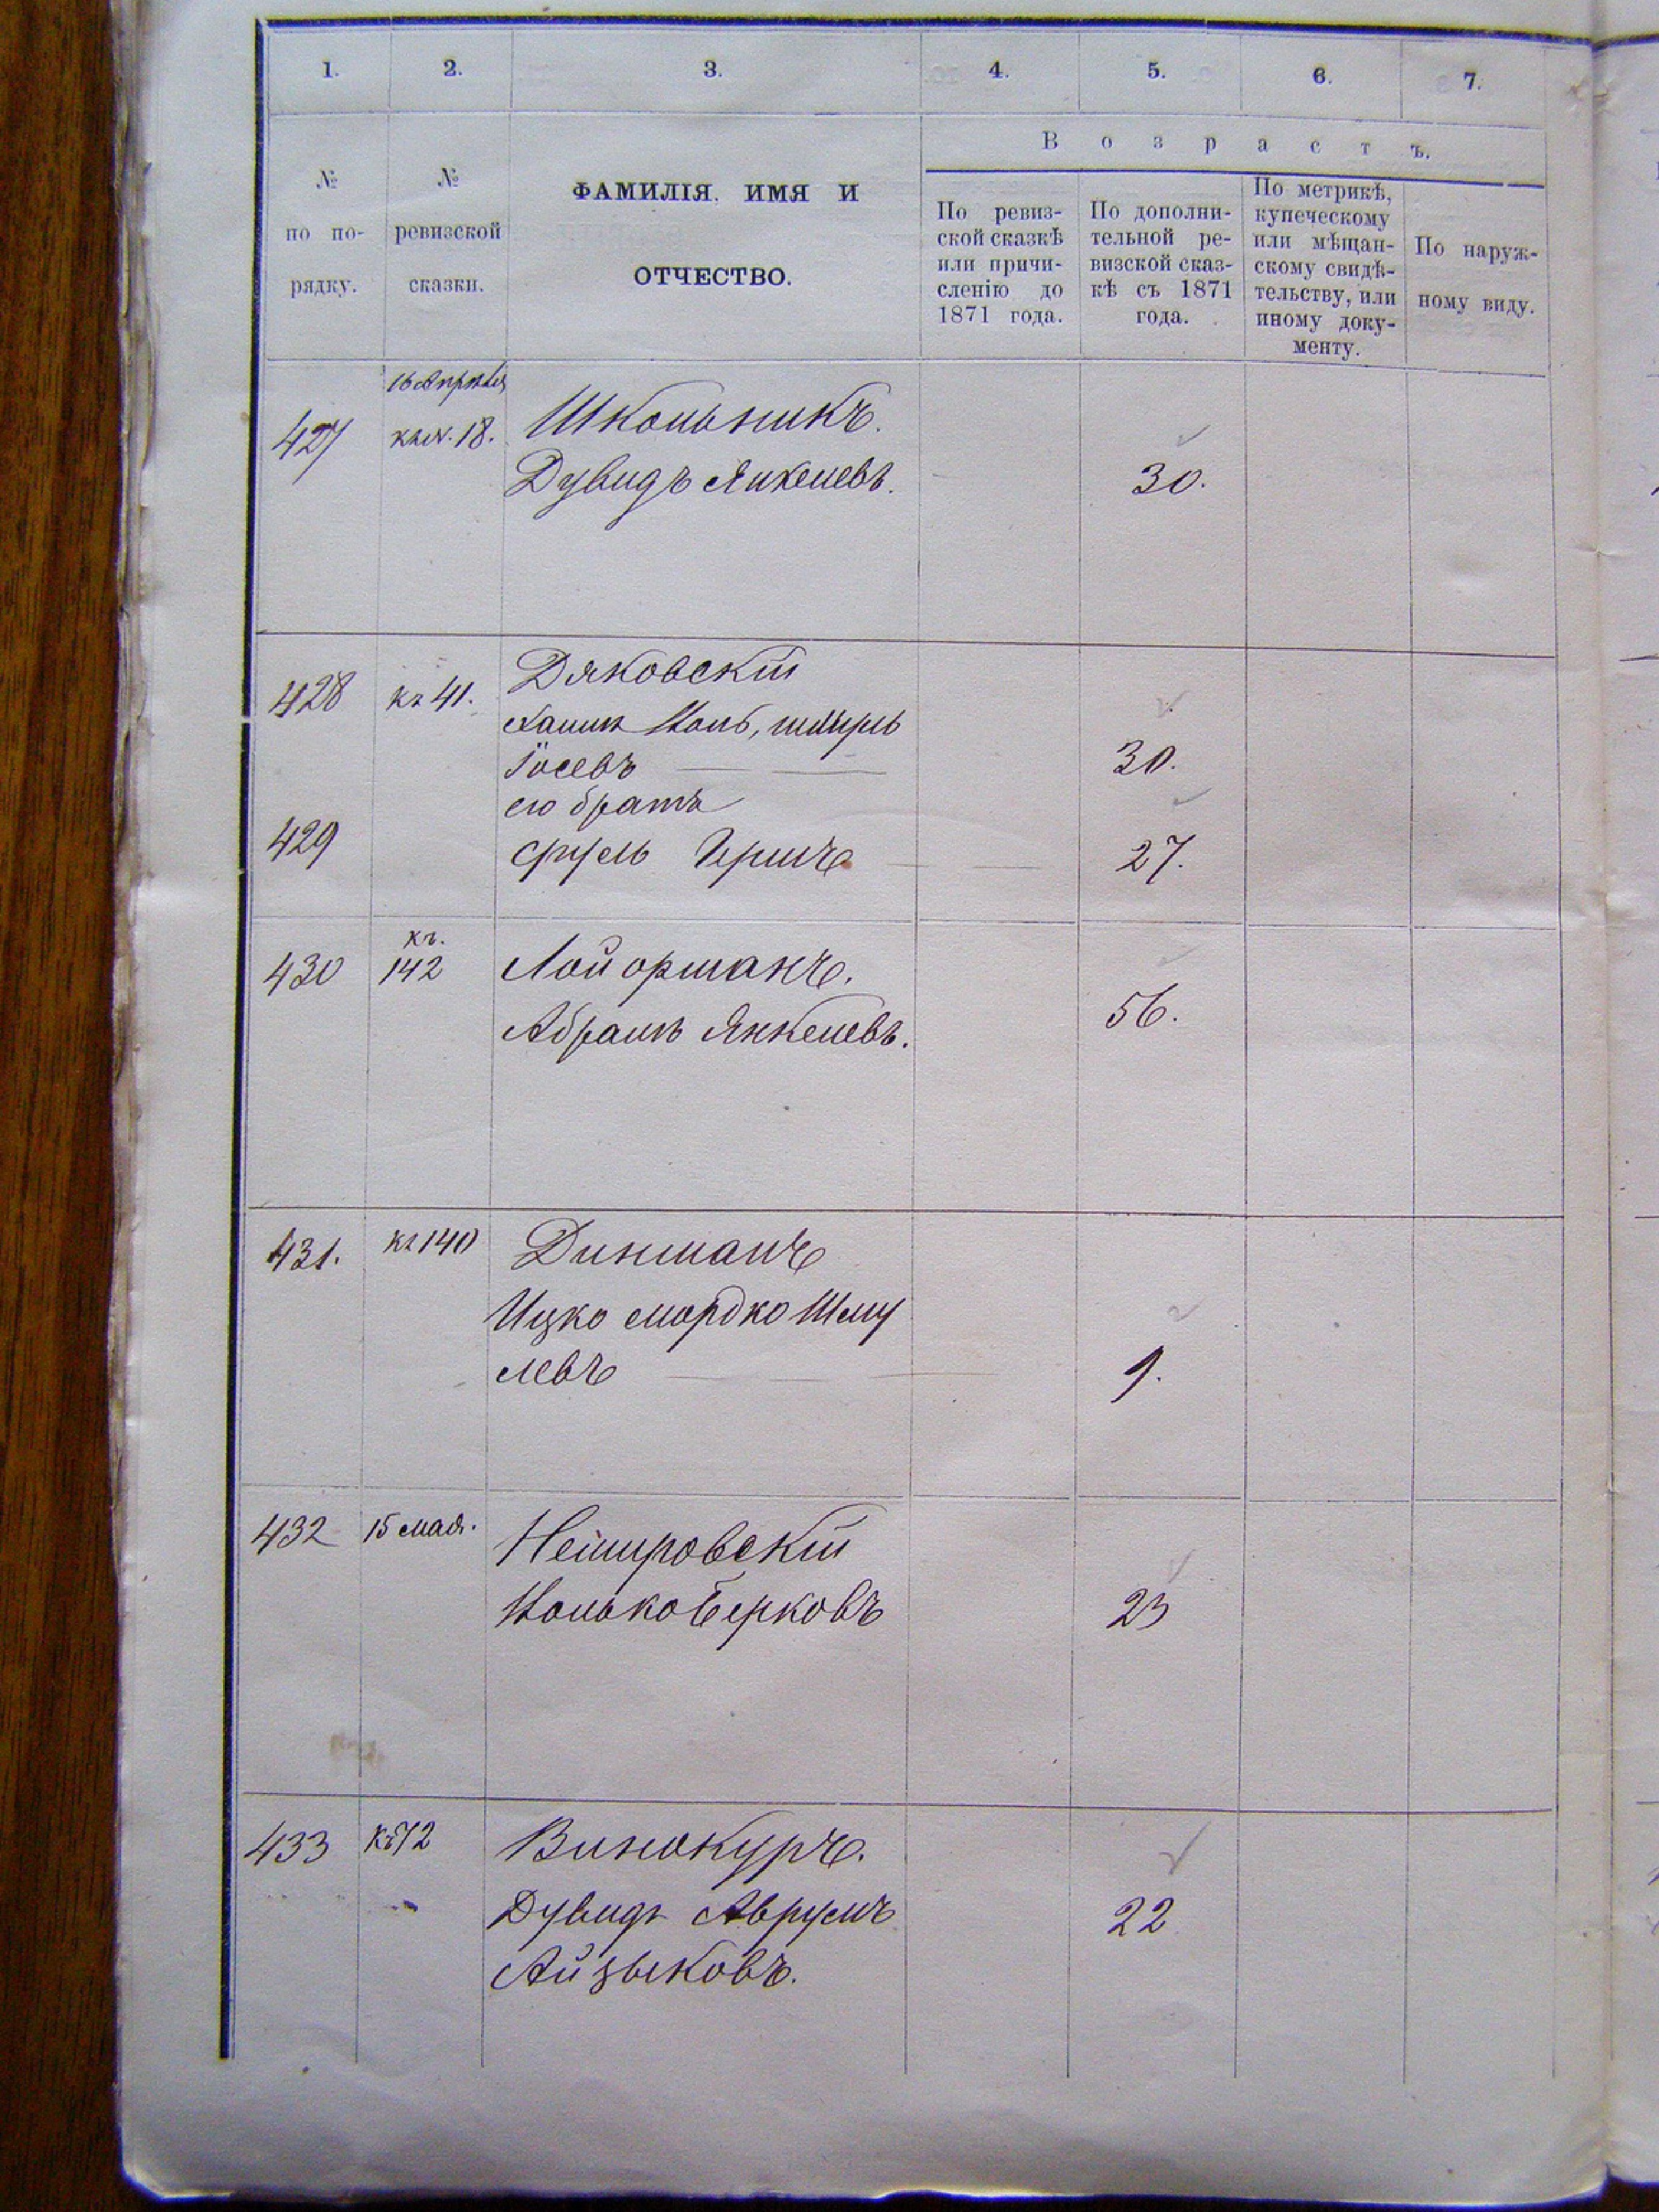 1. 2. 3. 4. 5. 6. 7.
В о з р а с т ъ.
№ по по- рядку.
№ ревизской сказки.
ФАМИЛІЯ, ИМЯ И
ОТЧЕСТВО.
По ревиз-
ской сказкѣ
или причи-
сленію до
1871 года.
По дополни-
тельной ре-
визской сказ-
кѣ съ 1871
года.
По метрикѣ,
купеческому
или мѣщан-
скому свидѣ-
тельству, или
иному доку-
менту.
По наруж-
ному виду.
16 Апрѣля
427 18. Школьникъ.
Дувидъ Янкелевъ. 30.
428 къ 41. Дяковскій
Іосевъ 30.
его братъ
429 Сруль Гершъ 27.
къ.
430 142 Лойорманъ.
Абрамъ Янкелевъ. 56.
431. къ 140 Динманъ
Ицко Мордко Шму
левъ 9.
432 15 мая. Немировскій
Нолько Берковъ 23
433 къ 72 Винокуръ.
Дувидъ Аврумъ 22
Айзыковъ.